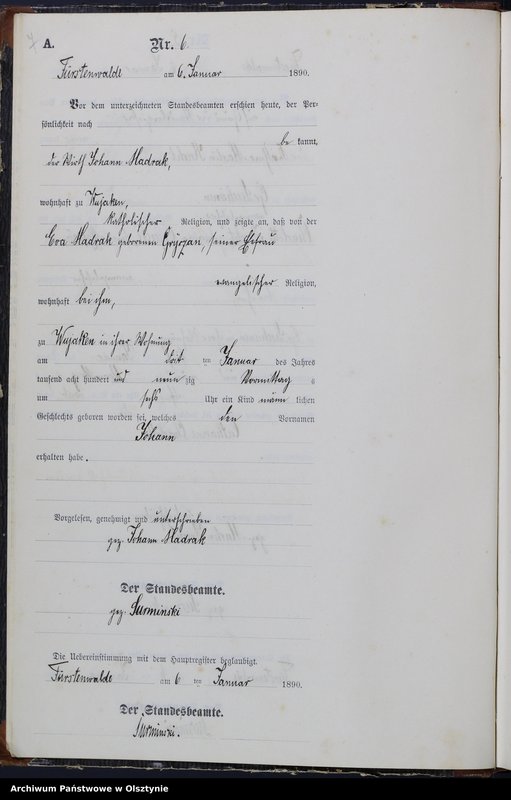 A. Nr. 6
Fürstenwalde am 6. Januar 1890.
Vor dem unterzeichneten Standesbeamten erschien heute, der Per-
sönlichkeit nach
be kannt,
der Wirth Johann Madrak,
wohnhaft zu Wujaken,
katholischer Religion, und zeigte an, daß von der
Eva Madrak geborenen seiner Ehefrau
evangelischer Religion,
wohnhaft bei ihm,
zu Wujaken in ihrer Wohnung
am dritten Januar des Jahres
tausend acht hundert und neun zig Vormittag s
um sechs Uhr ein Kind männ lichen
Geschlechts geboren worden sei, welches den Vornamen
Johann
erhalten habe.
Vorgelesen, genehmigt und unterschrieben
gez. Johann Madrak
Der Standesbeamte.
gez. Surminski
Die Uebereinstimmung mit dem Hauptregister beglaubigt.
Fürstenwalde am 6 ten Januar 1890.
Der Standesbeamte.
Surminski.
Archiwum Państwowe w Olsztynie